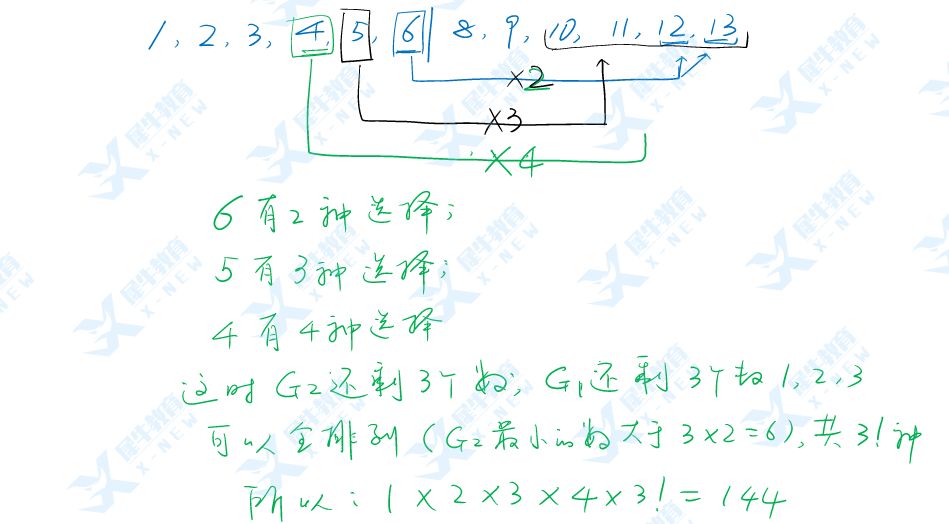 1, 2, 3, 4, 5, 6 | 8, 9, 10, 11, 12, 13
×2
×3
×4
6有2种选择;
5有3种选择;
4有4种选择
这时G2还剩3个数; G1还剩3个数1,2,3
可以全排列(G2最小的数大于3×2=6),共3!种
所以:1×2×3×4×3!=144
犀牛教育
X-NEW